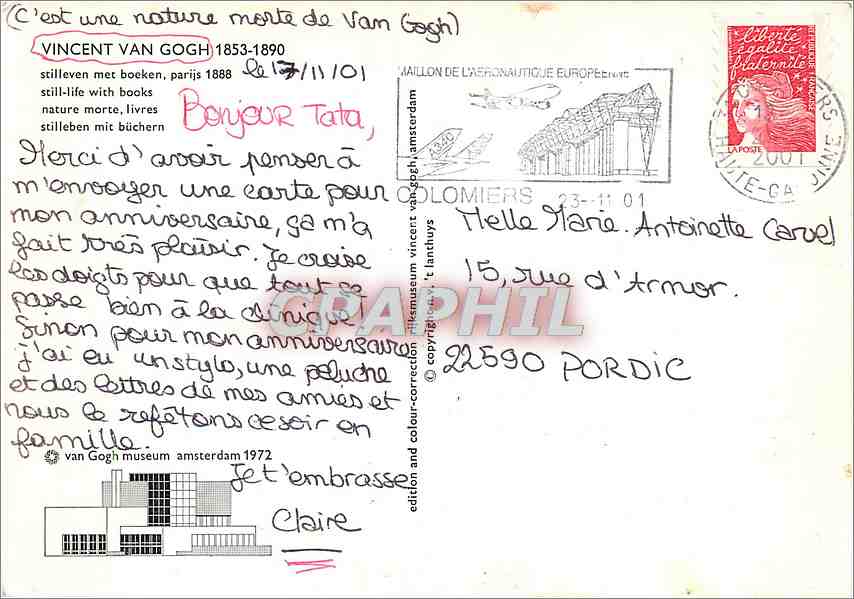 (C'est une nature morte de Van Gogh)
VINCENT VAN GOGH 1853-1890
stilleven met boeken, parijs 1888
still-life with books
nature morte, livres
stilleben mit büchern
le 17/11/01
Bonjour Tata,
Merci d'avoir penser à
m'envoyer une carte pour
mon anniversaire, ça m'a
fait très plaisir. Je croise
les doigts pour que tout se
passe bien à la clinique!
Sinon pour mon anniversaire
j'ai eu un stylo, une peluche
et des lettres de mes amies et
nous le refêtons ce soir en
famille.
Je t'embrasse
Claire
van Gogh museum amsterdam 1972
edition and colour-correction rijksmuseum vincent van gogh, amsterdam
© copyright n.v. 't lanthuys
MAILLON DE L'AERONAUTIQUE EUROPEENNE
A320
COLOMIERS 23-11 01
HAUTE-GARONNE
2001
liberté
égalité
fraternité
RÉPUBLIQUE FRANÇAISE
LA POSTE
Melle Marie-Antoinette Carvel
15, rue d'Armor.
22590 PORDIC
CPAPHIL